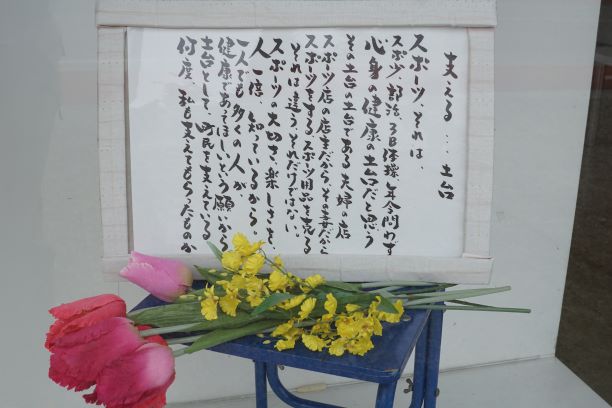 支える…土台
スポーツ、それは、
スポーツ、部活、3B体操、年令問わず
心身の健康の土台だと思う
その土台の土台である夫婦の店
スポーツ店の店主だから、その妻だから
スポーツをする、スポーツ用品を売る
それは違う、それだけではない。
スポーツの大切さ、楽しさを、
人一倍、知っているから、
一人でも多くの人が、
健康であってほしいという願いから
土台として、町民を支えている
何度、私も支えてもらったものか